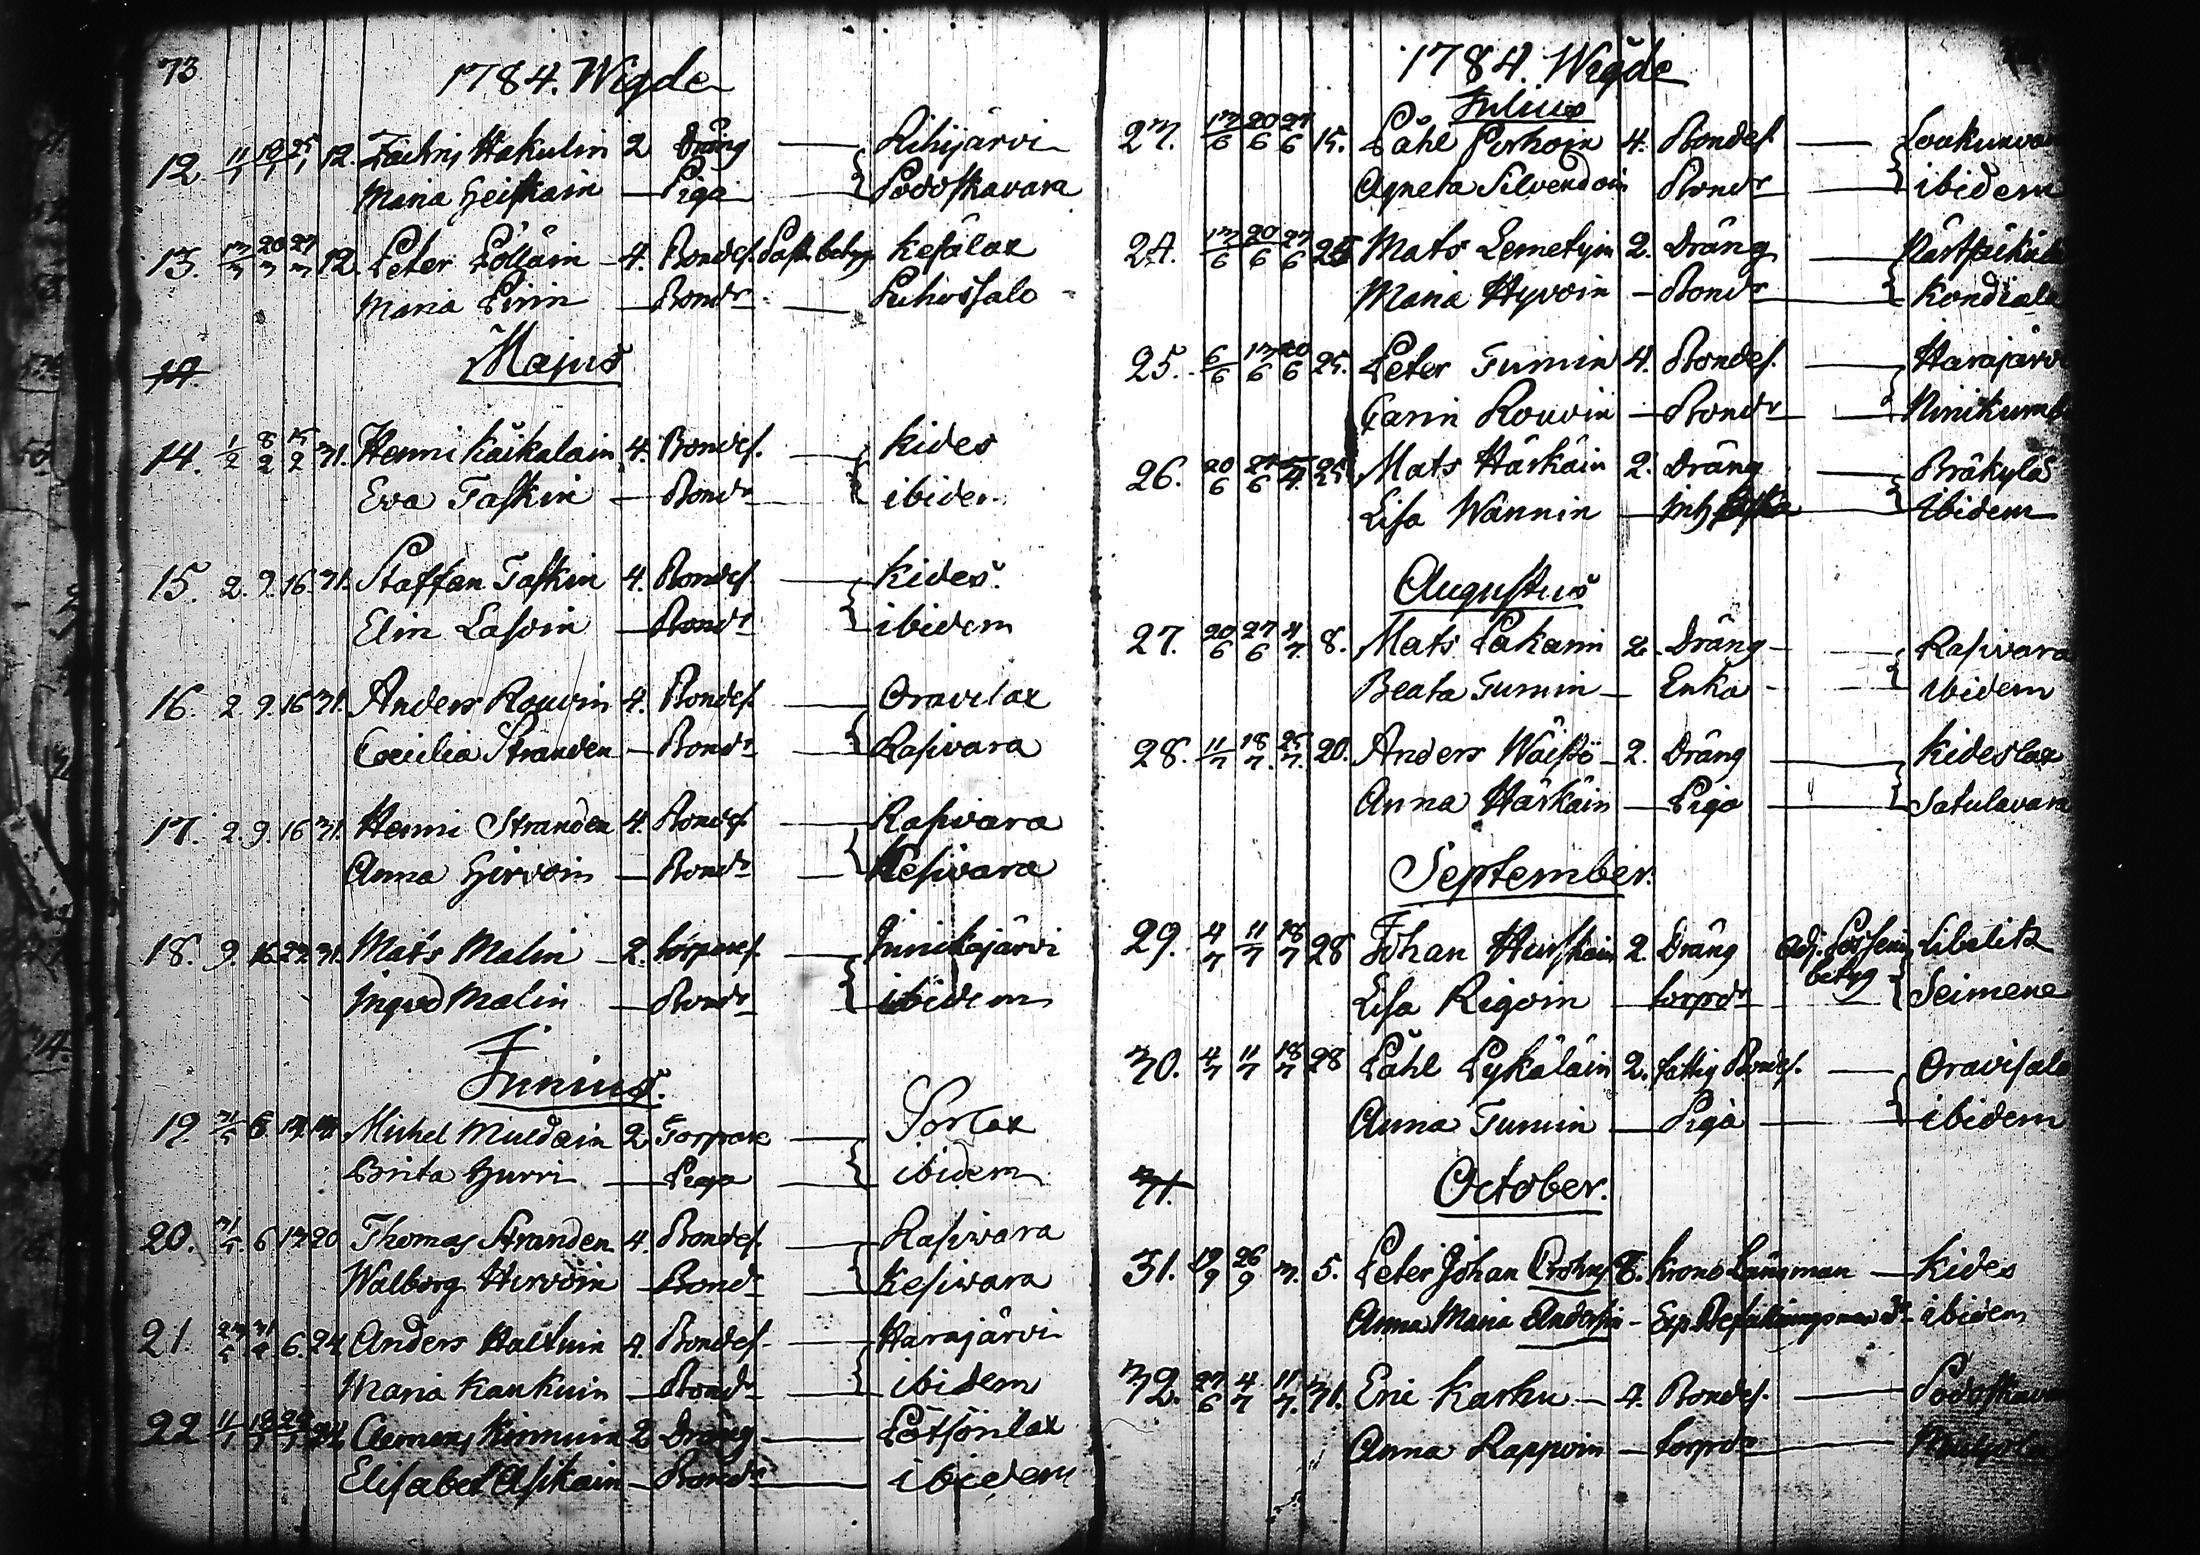 73
1784. Wigde
12. 11/1 18/1 25/1 12. Zachris Hakulin 2 Dräng — Rihijärvi
Maria Heiskain — Piga — Podoskavara
13. 13/3 20/3 27/3 12. Peter Pölläin 4. Bondes. Past. betyg Kesälax
Maria Pirin — Bondr — Puhossalo
Majus
14.
14. 1/2 8/2 15/2 31. Henric Käikalain 4. Bondes. — Kides
Eva Taskin — Bondr — ibidem
15. 2. 9. 16. 31. Staffan Taskin 4. Bondes. — Kides.
Elin Lasoin — Bondr — ibidem
16. 2. 9. 16. 31. Anders Rouvin 4. Bondes. — Oravilax
Cecilia Stranden — Bondr — Rasivara
17. 2. 9. 16. 31. Henric Stranden 4. Bondes. — Rasivara
Anna Hirvoin — Bondr — Kesivara
18. 9. 16. 23. 31. Mats Malin — 2. torpares. — Juurikajärvi
Ingred Malin — Bondr — ibidem
Junius.
19. 31/5 6 13. Michel Muldain 2 Torpare — Sorlax
Brita Hurri — Piga — ibidem
20. 31/5 6 13 20 Thomas Stranden 4. Bondes. — Rasivara
Walborg Hirvoin — Bondr — Kesivara
21. 6. 24 Anders Haltuin 4. Bondes. — Harajärvi
Maria Kaukuin — Bondr — ibidem
22 11/1 18/1 24 Clemens Kinnuin 2 Dräng — Pötsönlax
Elisabet Asikain — Bondr — ibidem
1784. Wigde
Julius
23. 13/6 20/6 27/6 15. Påhl Porhoin 4. Bondes. —
Agneta Silvendoin Bondr — ibidem
24. 13/6 20/6 27/6 25 Mats Lemetyin 2. Dräng —
Maria Hyvoin — Bondr — Kondiala
25. 6/6 13/6 20/6 25. Peter Turnin 4. Bondes. — Harajärvi
Carin Rouvin — Bondr — Niinikumbu
26. 20/6 27/6 4/7 25. Mats Härkäin 2. Dräng — Bräkylä
Lisa Wännin — Inh — ibidem
Augustus
27. 20/6 27/6 4/7 8. Mats Pakarin 2. Dräng — Rasivara
Beata Turnin — Enka — ibidem
28. 11/7 18/7 25/7 20. Anders Wäistö 2. Dräng — Kideslax
Anna Härkäin — Piga — Satulavara
September.
29. 4/7 11/7 18/7 28 Johan Hurskain 2. Dräng Adj. betyg Libelitz
Lisa Rigoin — torpdr — Seimene
30. 4/7 11/7 18/7 28 Påhl Pykäläin 2. fattig Bondes. — Oravisalo
Anna Turnin — Piga — ibidem
31.
October.
31. 19/9 26/9 3. 5. Peter Johan Crohns 8. Krono Länsman — Kides
Anna Maria — Exp. — ibidem
32. 27/6 4/7 11/7 31. Eric Karhu — 4. Bondes. — Podoskavara
Anna Rappoin — torpdr —